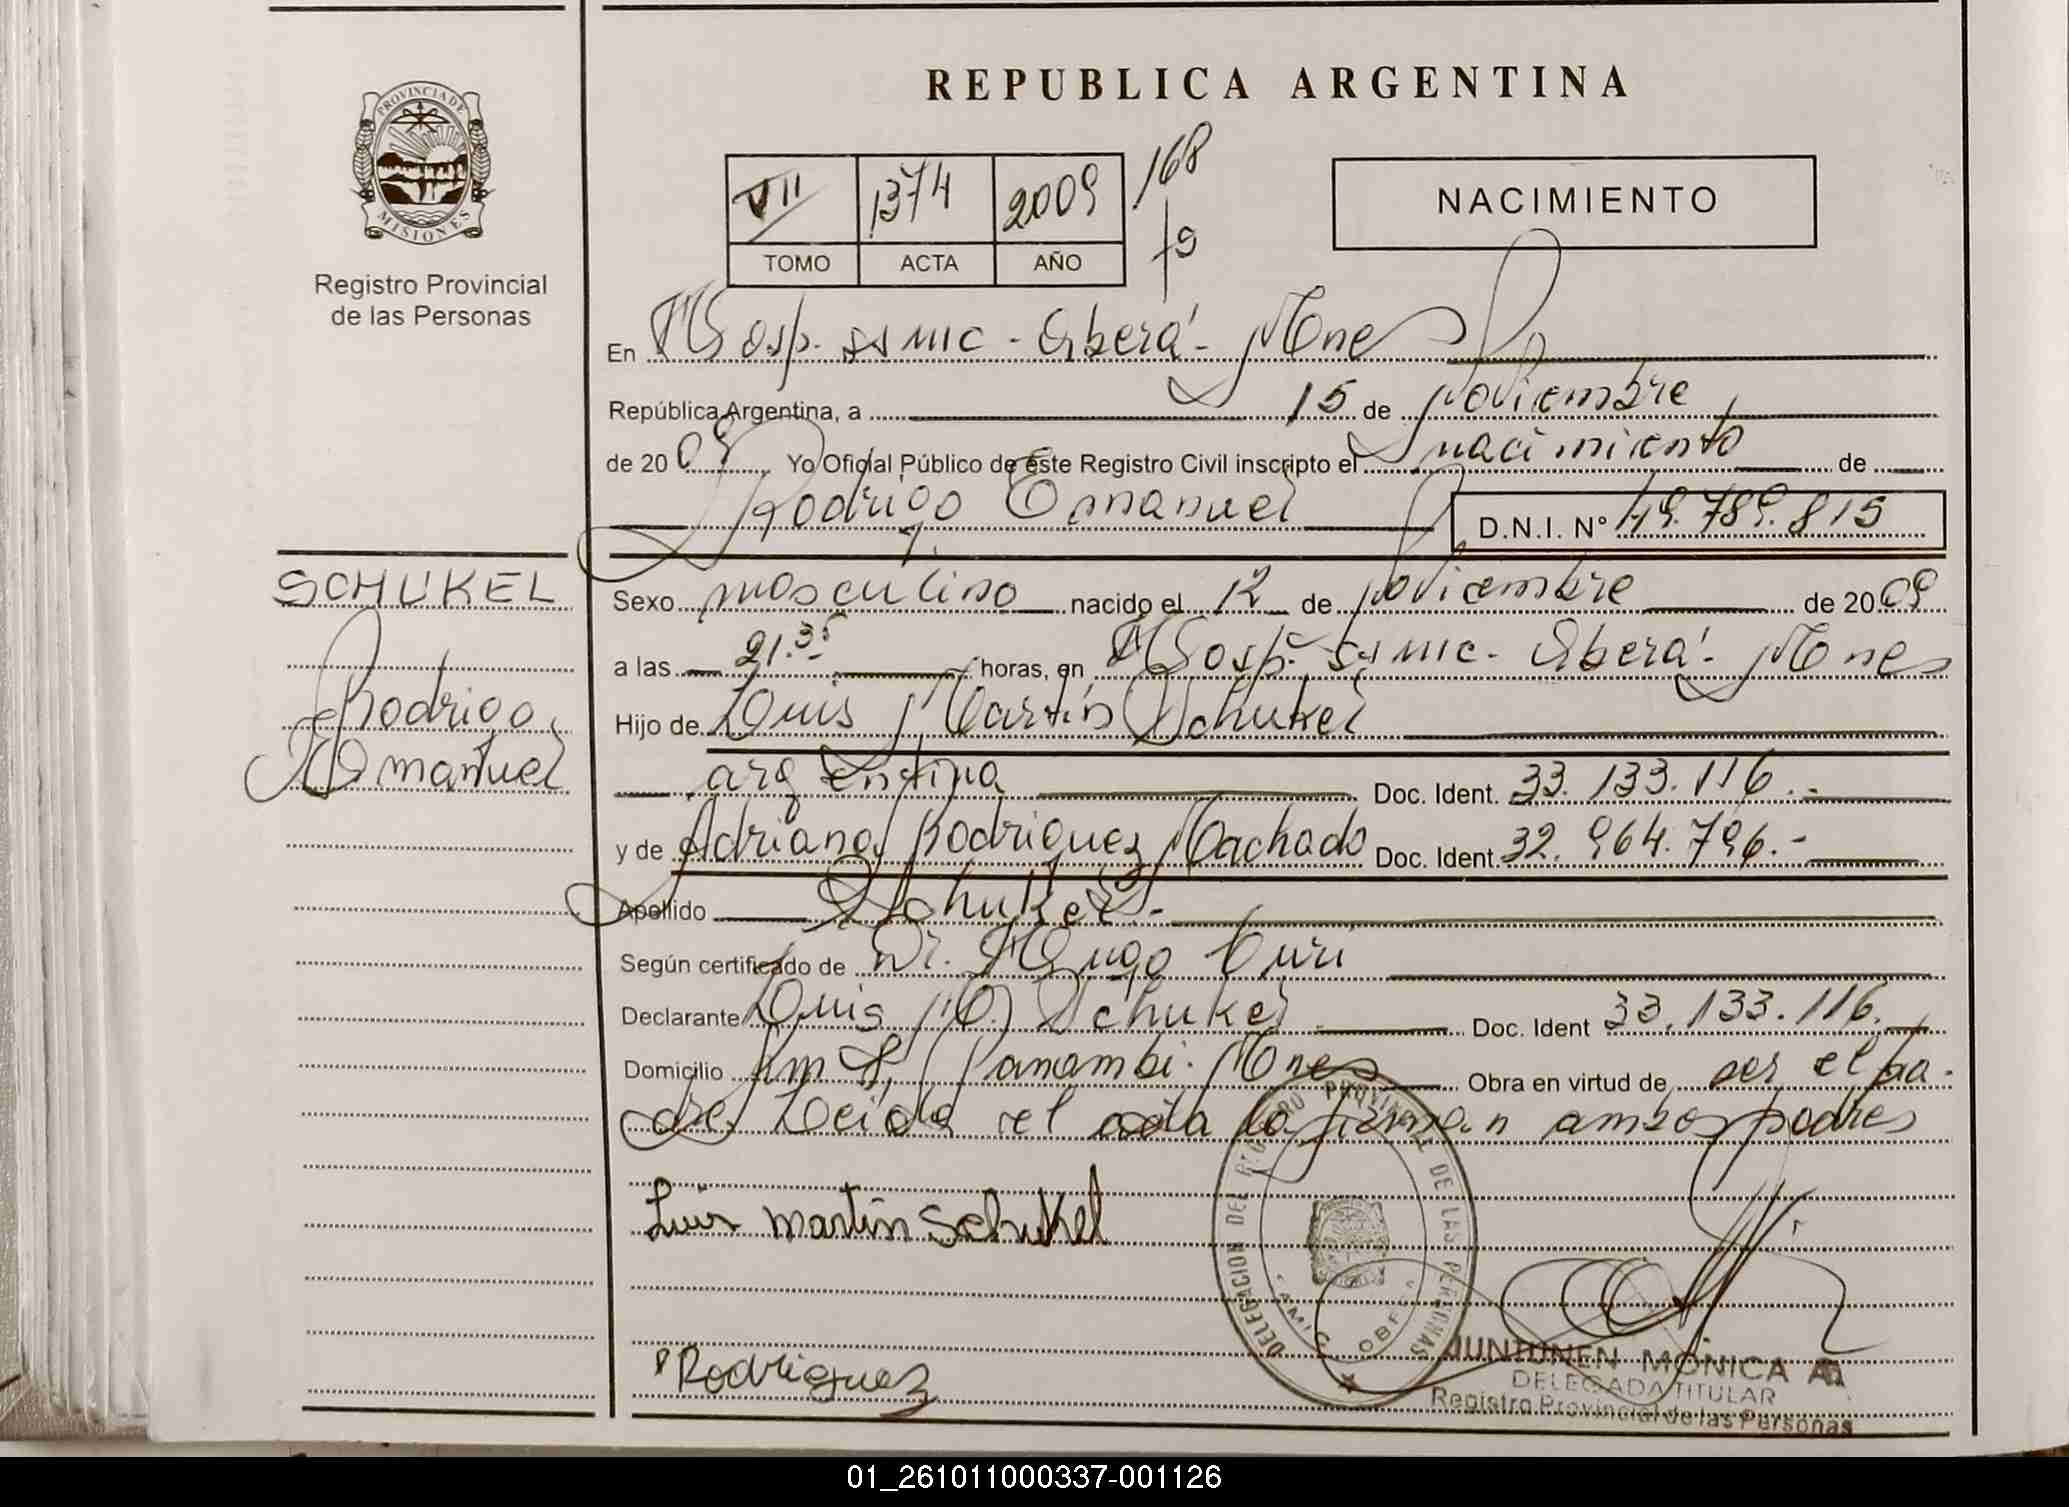 REPUBLICA ARGENTINA
PROVINCIA DE
MISIONES
Registro Provincial
de las Personas
VII 1374 2009 168
TOMO ACTA AÑO
NACIMIENTO
En Hosp. SAMIC - Oberá - Mnes
República Argentina, a 15 de Noviembre
de 2009 Yo Oficial Público de este Registro Civil inscripto el nacimiento de
Rodrigo Emanuel D.N.I. Nº 49.789.815
SCHUKEL
Rodrigo
Emanuel
Sexo masculino nacido el 12 de Noviembre de 2009
a las 21.35 horas, en Hosp. SAMIC - Oberá - Mnes
Hijo de Luis Martín Schukel
argentina Doc. Ident. 33.133.116.-
y de Adriana Rodriguez Machado Doc. Ident. 32.964.796.-
Apellido Schukel.-
Según certificado de Dr. Hugo
Declarante Luis M. Schukel Doc. Ident 33.133.116.
Domicilio Km 8, Panambi. Mnes Obra en virtud de ser el pa-
dre. Leida el acta la firman ambos padres
Luis martin Schukel
DELEGACION DEL REGISTRO PROVINCIAL DE LAS PERSONAS
Rodriguez
JUNTUNEN MONICA A.
DELEGADA TITULAR
Registro Provincial de las Personas
01_261011000337-001126